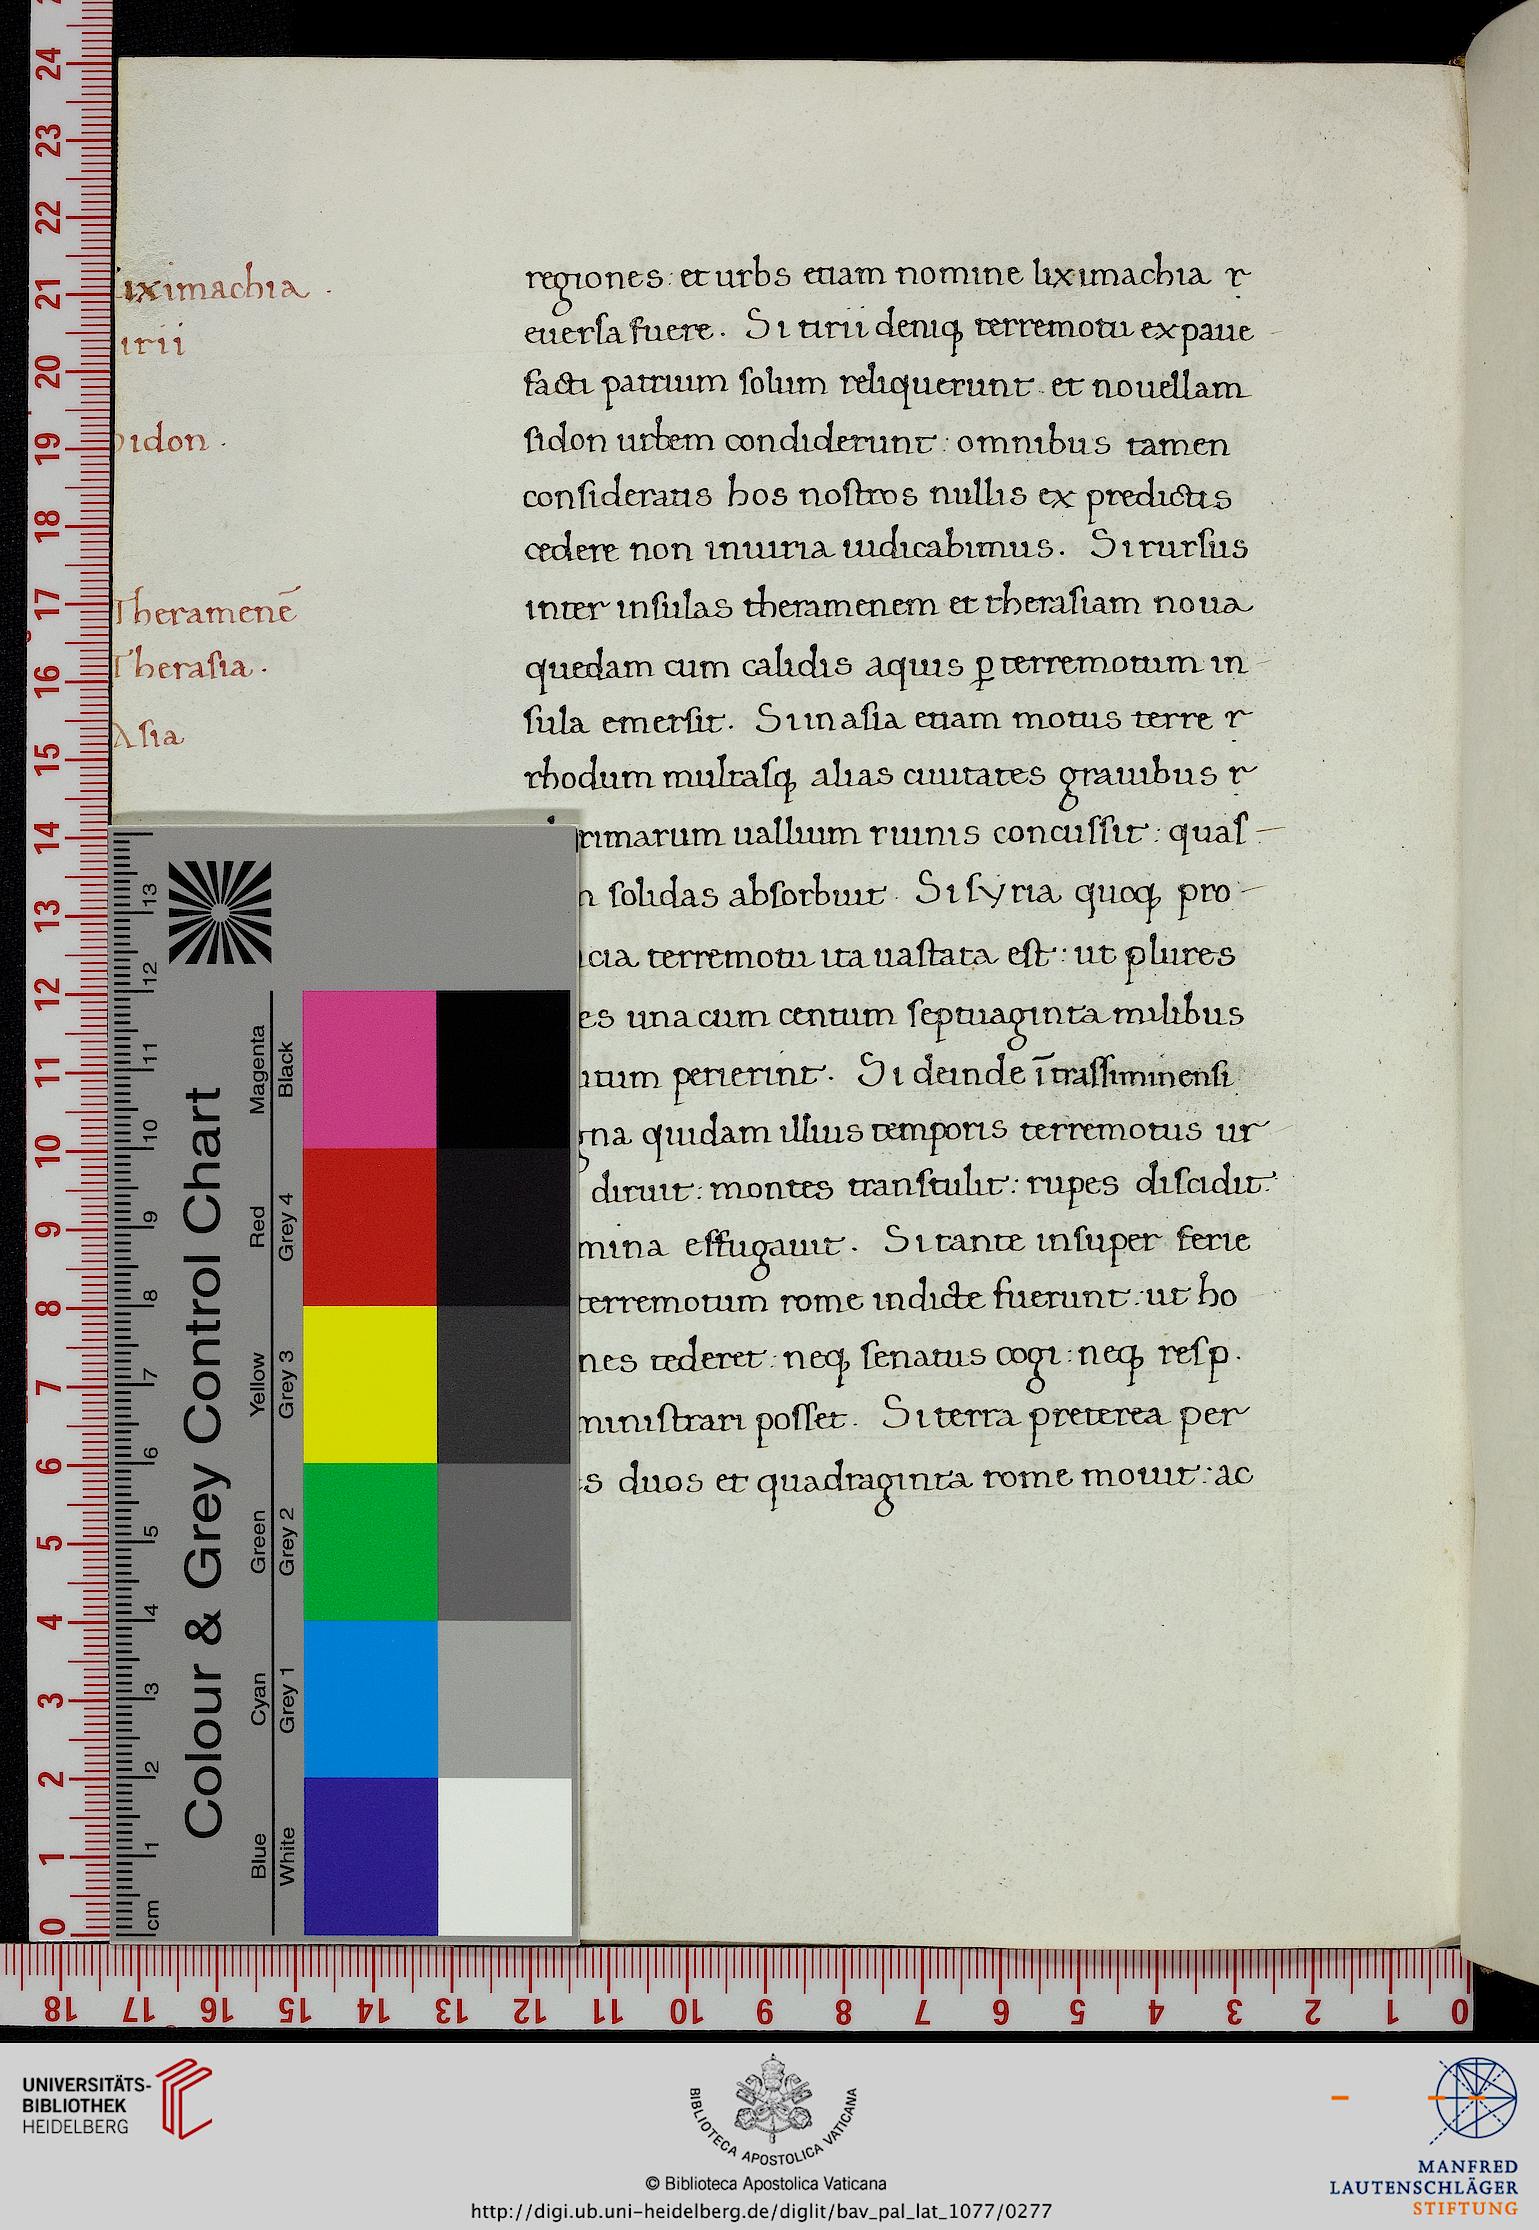 regiones: et urbs etiam nomine liximachia ɽ
euersa fuere. Si tirii deniqꝫ terremotu expaue
facti patrium solum reliquerunt et nouellam
sidon urbem condiderunt: omnibus tamen
consideratis hos nostros nullis ex predictis
cedere non iniuria iudicabimus. Si rursus
inter insulas theramenem et therasiam noua
quedam cum calidis aquis ꝑ terremotum in
sula emersit. Si in asia etiam motus terre ɽ
rhodum multasqꝫ alias ciuitates grauibus ɽ
rimarum uallium ruinis concussit: quas
n solidas absorbuit. Si syria quoqꝫ pro
cia terremotu ita uastata est: ut plures
es una cum centum septuaginta milibus
itum perierint. Si deinde ī trassiminensi
gna quidam illius temporis terremotus ur
diruit: montes transtulit: rupes discidit:
mina effugauit. Si tante insuper ferie
terremotum rome indicte fuerunt: ut ho
nes tederet: neqꝫ senatus cogi: neqꝫ resp.
ministrari posset. Si terra preterea per
s duos et quadraginta rome mouit: ac
liximachia.
irii
sidon.
Theramenē
Therasia.
Asia
Colour & Grey Control Chart
Blue Cyan Green Yellow Red Magenta
White Grey 1 Grey 2 Grey 3 Grey 4 Black
cm 1 2 3 4 5 6 7 8 9 10 11 12 13
24
23
22
21
20
19
18
17
16
15
14
13
12
11
10
9
8
7
6
5
4
3
2
1
0
18 17 16 15 14 13 12 11 10 9 8 7 6 5 4 3 2 1 0
UNIVERSITÄTS-
BIBLIOTHEK
HEIDELBERG
BIBLIOTECA APOSTOLICA VATICANA
© Biblioteca Apostolica Vaticana
http://digi.ub.uni-heidelberg.de/diglit/bav_pal_lat_1077/0277
MANFRED
LAUTENSCHLÄGER
STIFTUNG